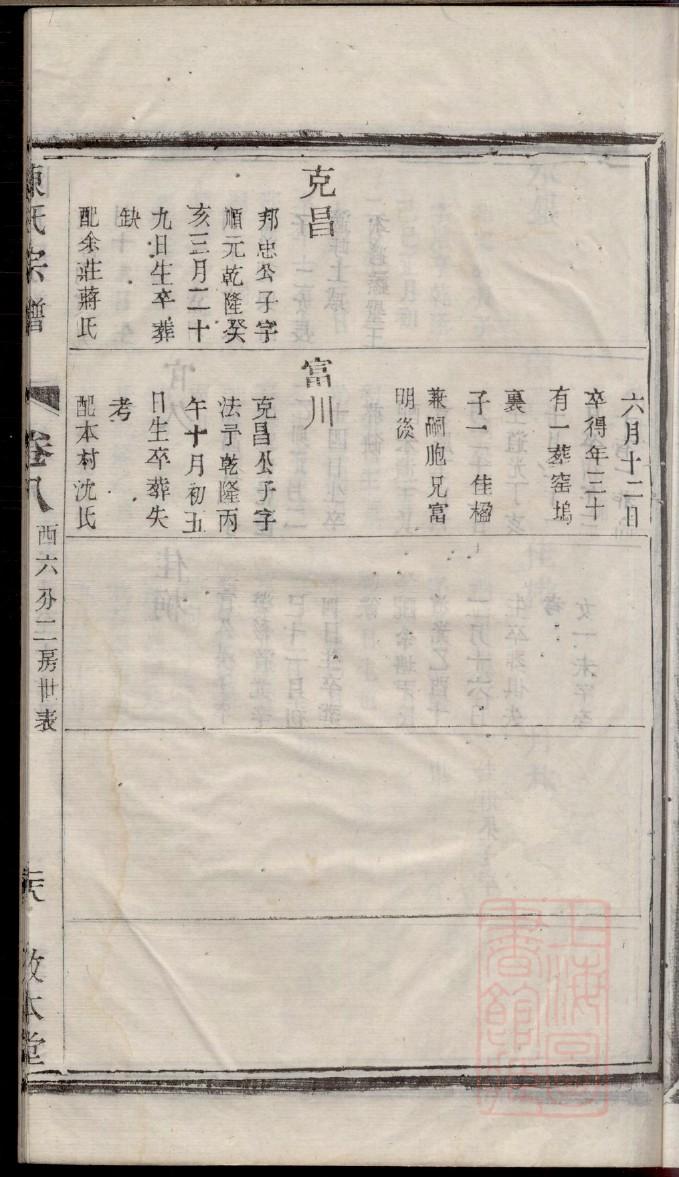 克昌
邦忠公子字
順元乾隆癸
亥三月二十
九日生卒葬
缺
配余莊蔣氏
六月十二日
卒得年三十
有一葬窑塢
裏
子一 佳楹
兼嗣胞兄富
明後
富川
克昌公子字
法予乾隆丙
午十月初五
日生卒葬失
考
配本村沈氏
陳氏宗譜
卷八
西六分二房世表
敦本堂
上海圖書館藏